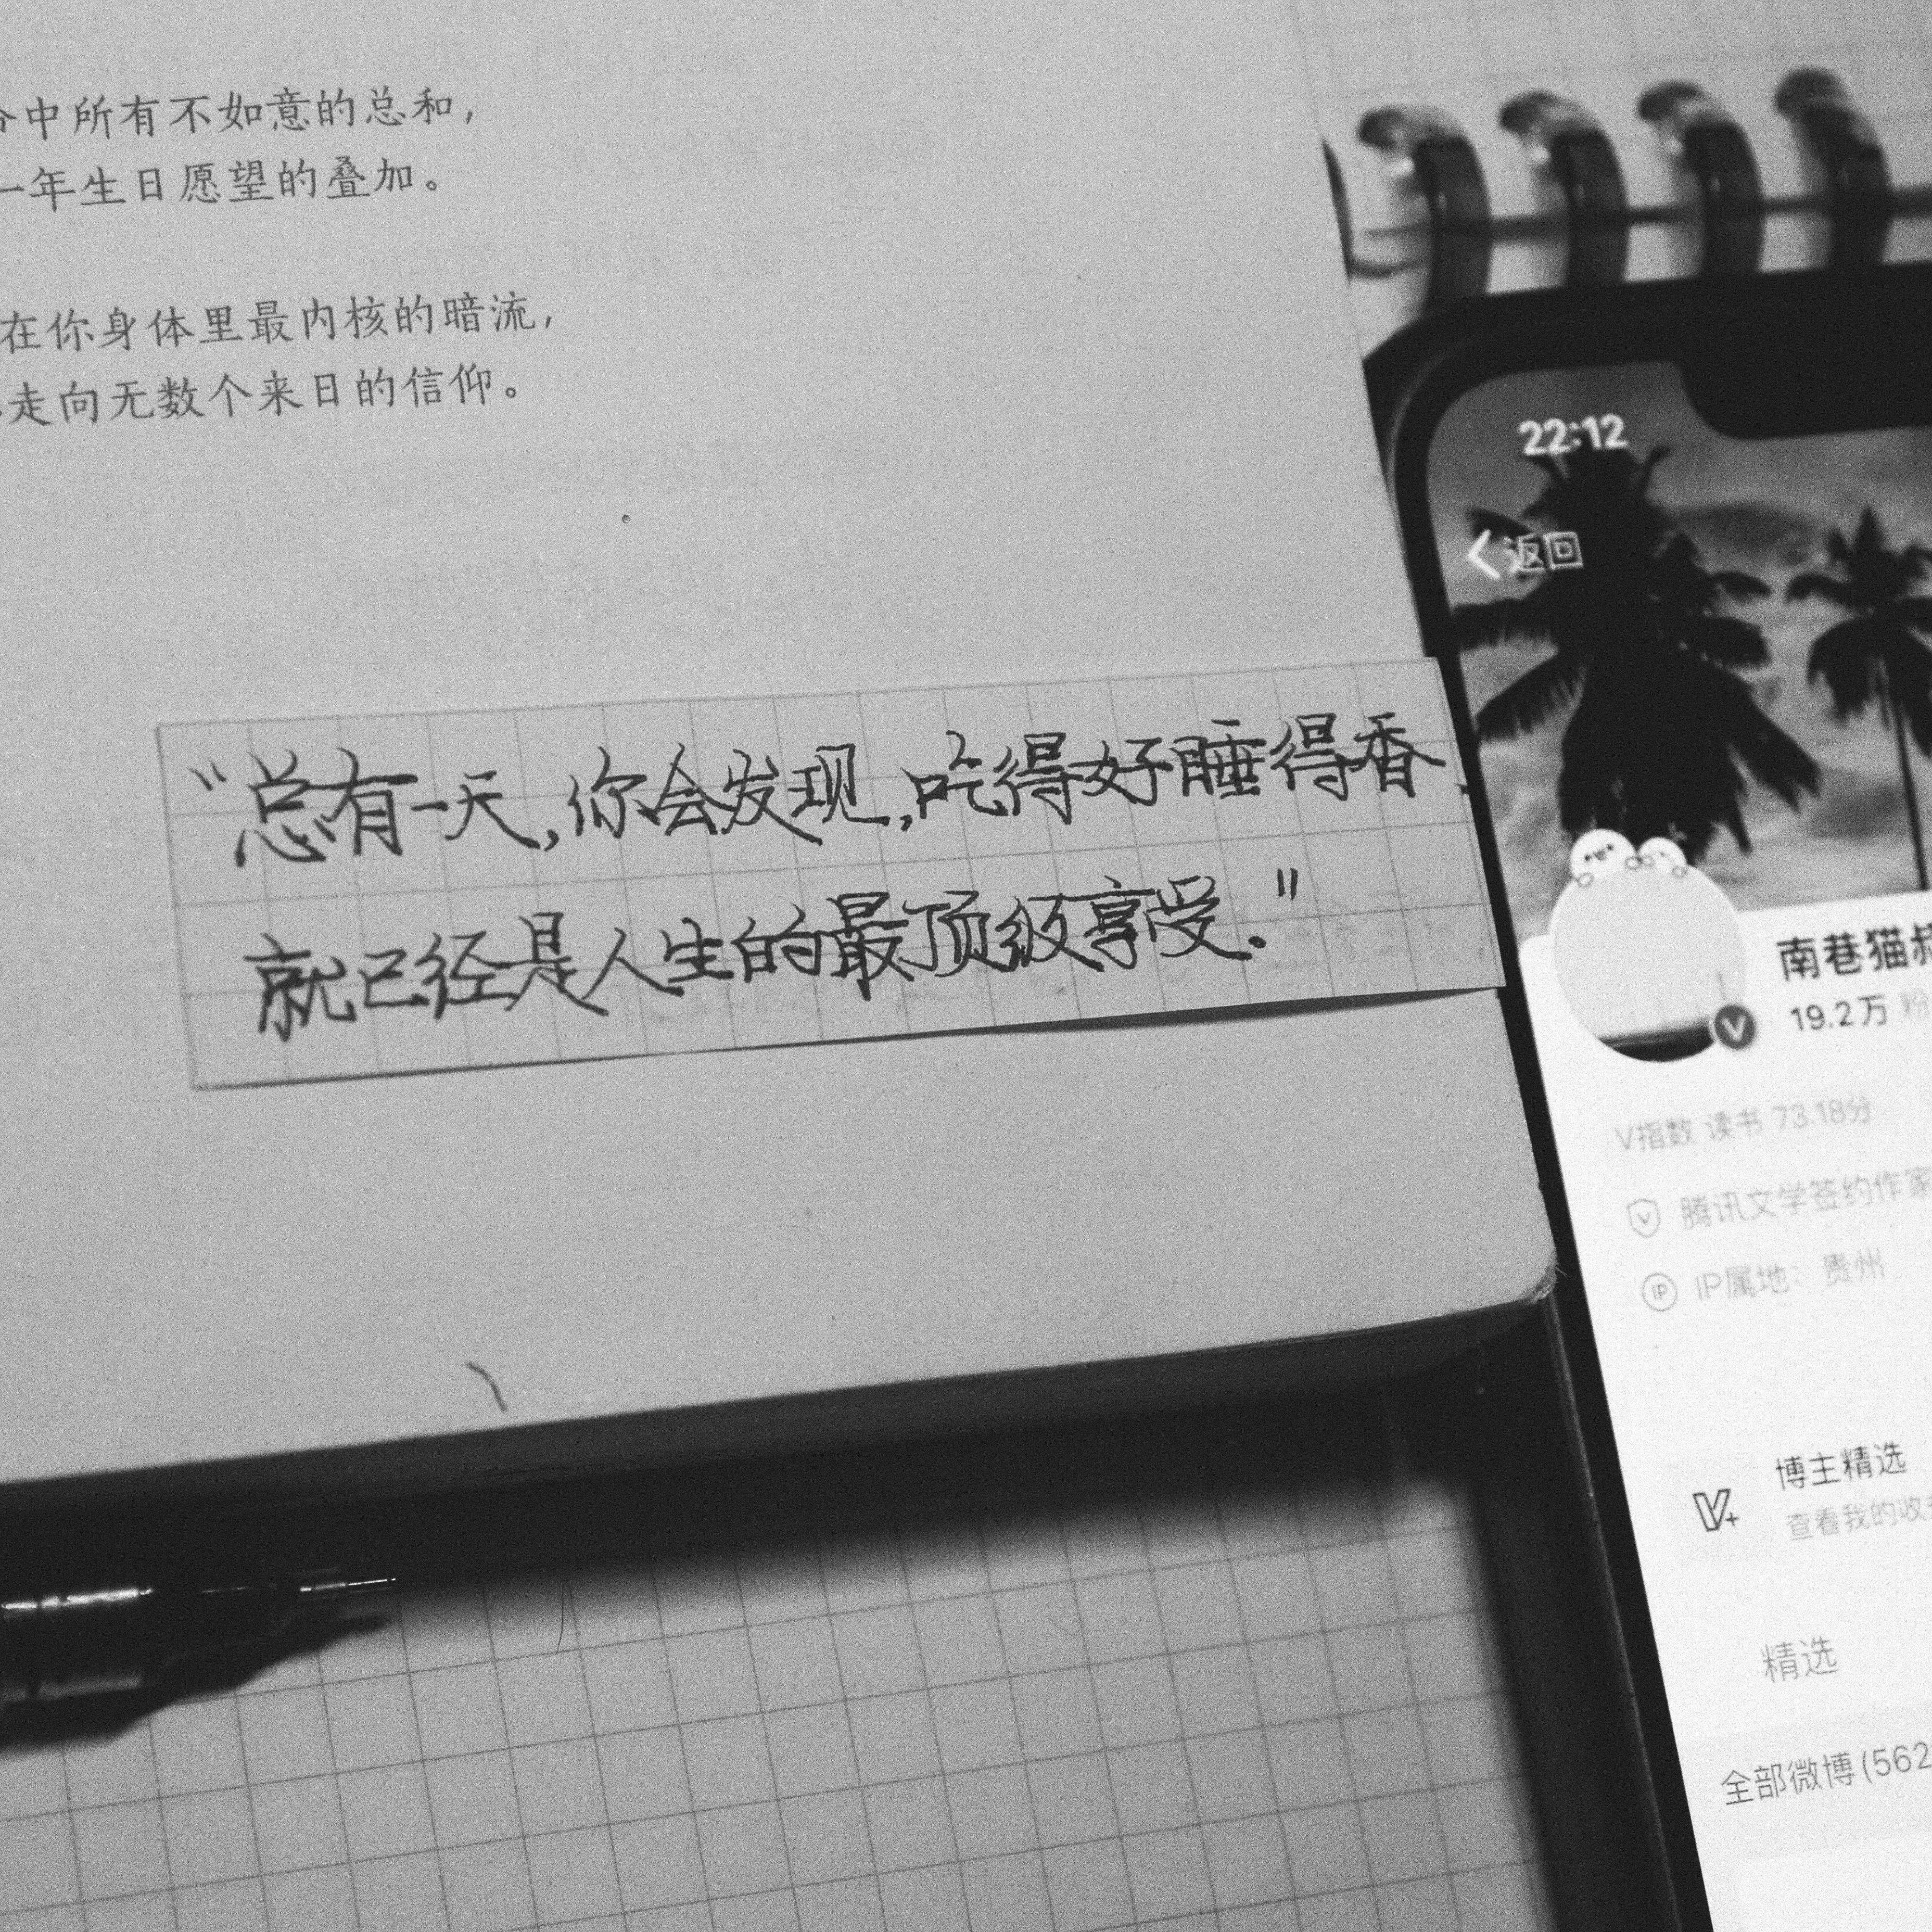 中所有不如意的总和，
一年生日愿望的叠加。
在你身体里最内核的暗流，
走向无数个来日的信仰。
“总有一天，你会发现，吃得好睡得香，
就已经是人生的最顶级享受。”
22:12
返回
南巷猫叔
19.2万 粉
V指数 读书 73.18分
腾讯文学签约作家
IP IP属地：贵州
博主精选
查看我的收
精选
全部微博(562